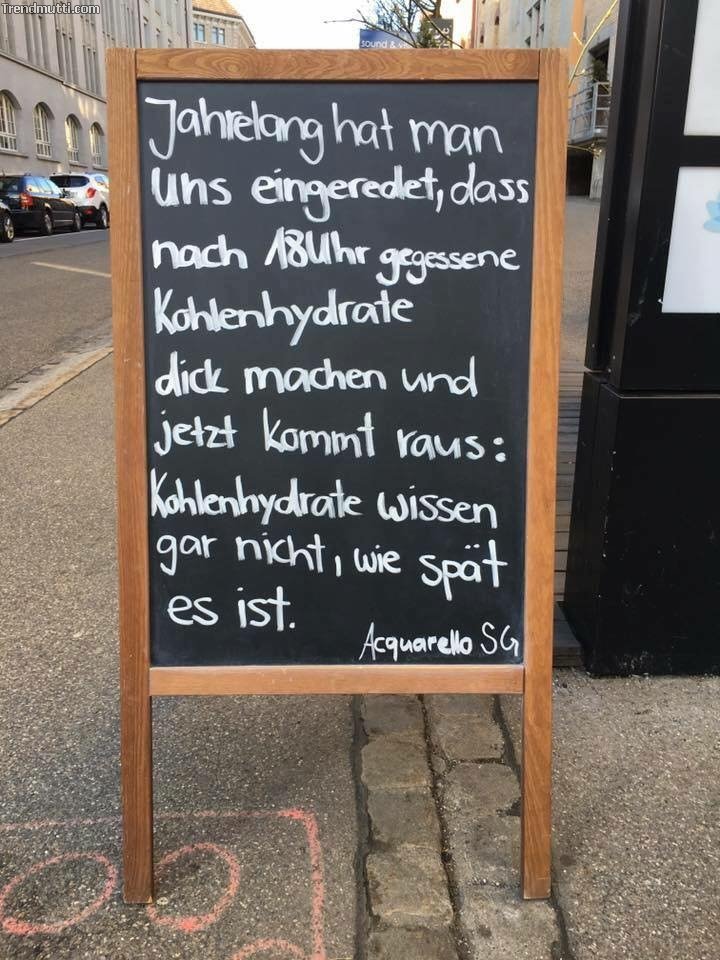 Trendmutti.com
sound &
Jahrelang hat man
uns eingeredet, dass
nach 18Uhr gegessene
Kohlenhydrate
dick machen und
jetzt kommt raus:
Kohlenhydrate wissen
gar nicht, wie spät
es ist.
Acquarello SG